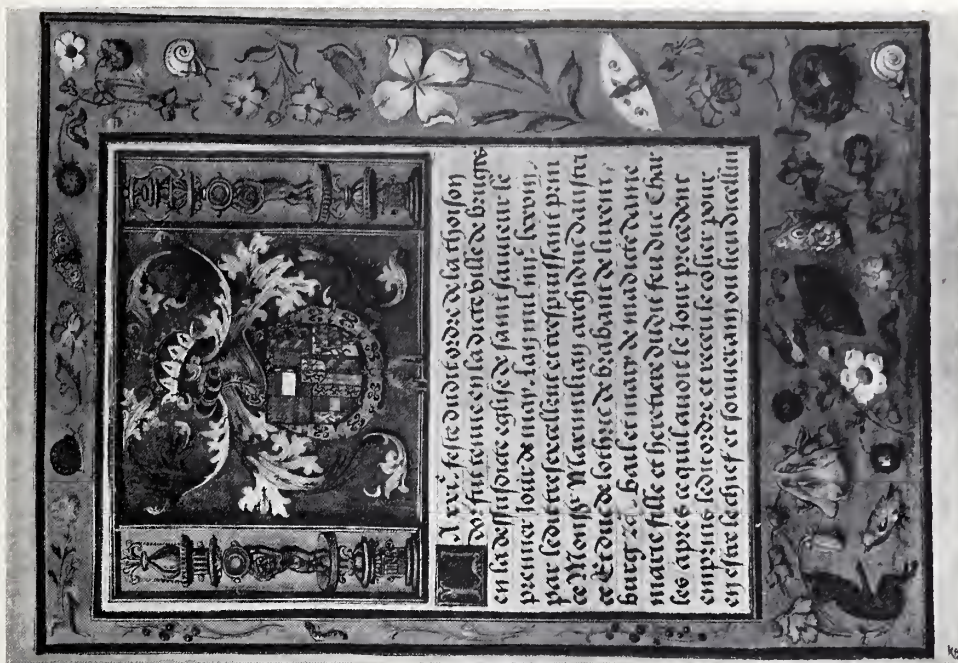 LA feste dudit ordre de la thoison
Dor fut tenue en la dicte ville de bruges
en la dessusdicte eglise de saint sauveur le
premier jour de may lan mil
par ledit tresexcellent et trespuissant prin
ce Maximilien archiduc daustri
ce Et duc de lothric de brabant de
burg zc. bail et mary de madicte dame
marie fille et heretiere dudit feu duc Char
les apres ce quil avoit le jour precedent
emprins ledit ordre et receu le colier pour
en estre le chief et souverain ou lieu dicellui